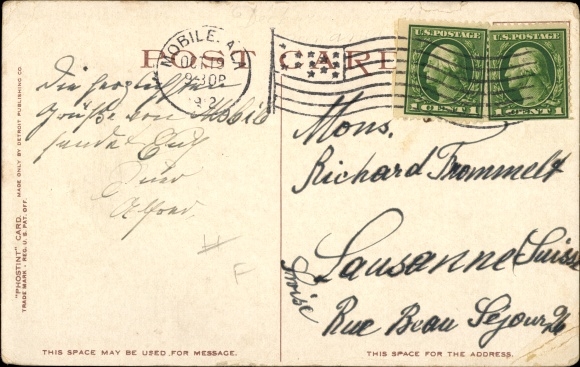 POST CARD
MOBILE, ALA.
OCT 19
9-30P
U.S. POSTAGE
1 CENT 1
U.S. POSTAGE
1 CENT 1
Die herzlichsten
Grüße von Mobile
sendet Euch
Euer
Alfred.
Mons.
Richard Trommelt
Lausanne Suisse
Rue Beau Séjour 26
Suisse
# 
F
"PHOSTINT" CARD. MADE ONLY BY DETROIT PUBLISHING CO.
TRADE MARK - REG. U. S. PAT. OFF.
THIS SPACE MAY BE USED FOR MESSAGE.
THIS SPACE IS FOR THE ADDRESS.